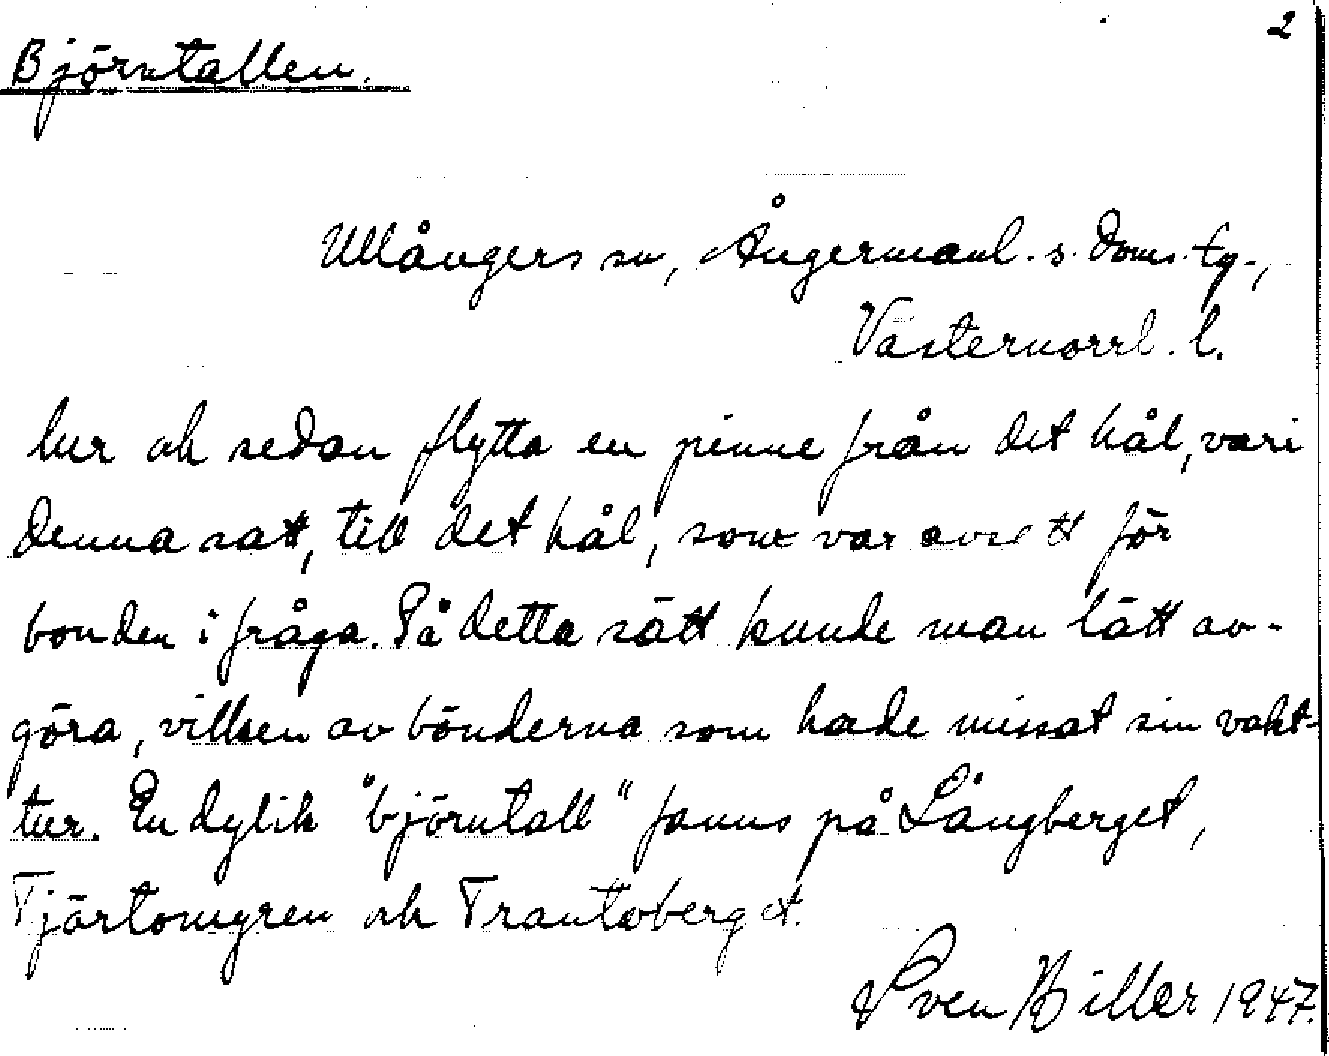 2
Björntallen.
Ullångers sn, Ångermanl. s. doms. tg.,
Västernorrl. l.
lur och sedan flytta en pinne från det hål, vari
denna satt, till det hål, som var avsett för
bonden i fråga. På detta sätt kunde man lätt av-
göra, vilken av bönderna som hade missat sin vakt-
tur. En dylik "björntall" fanns på Långberget,
Tjärtomyren och Trantoberget.
Sven Hiller 1947.